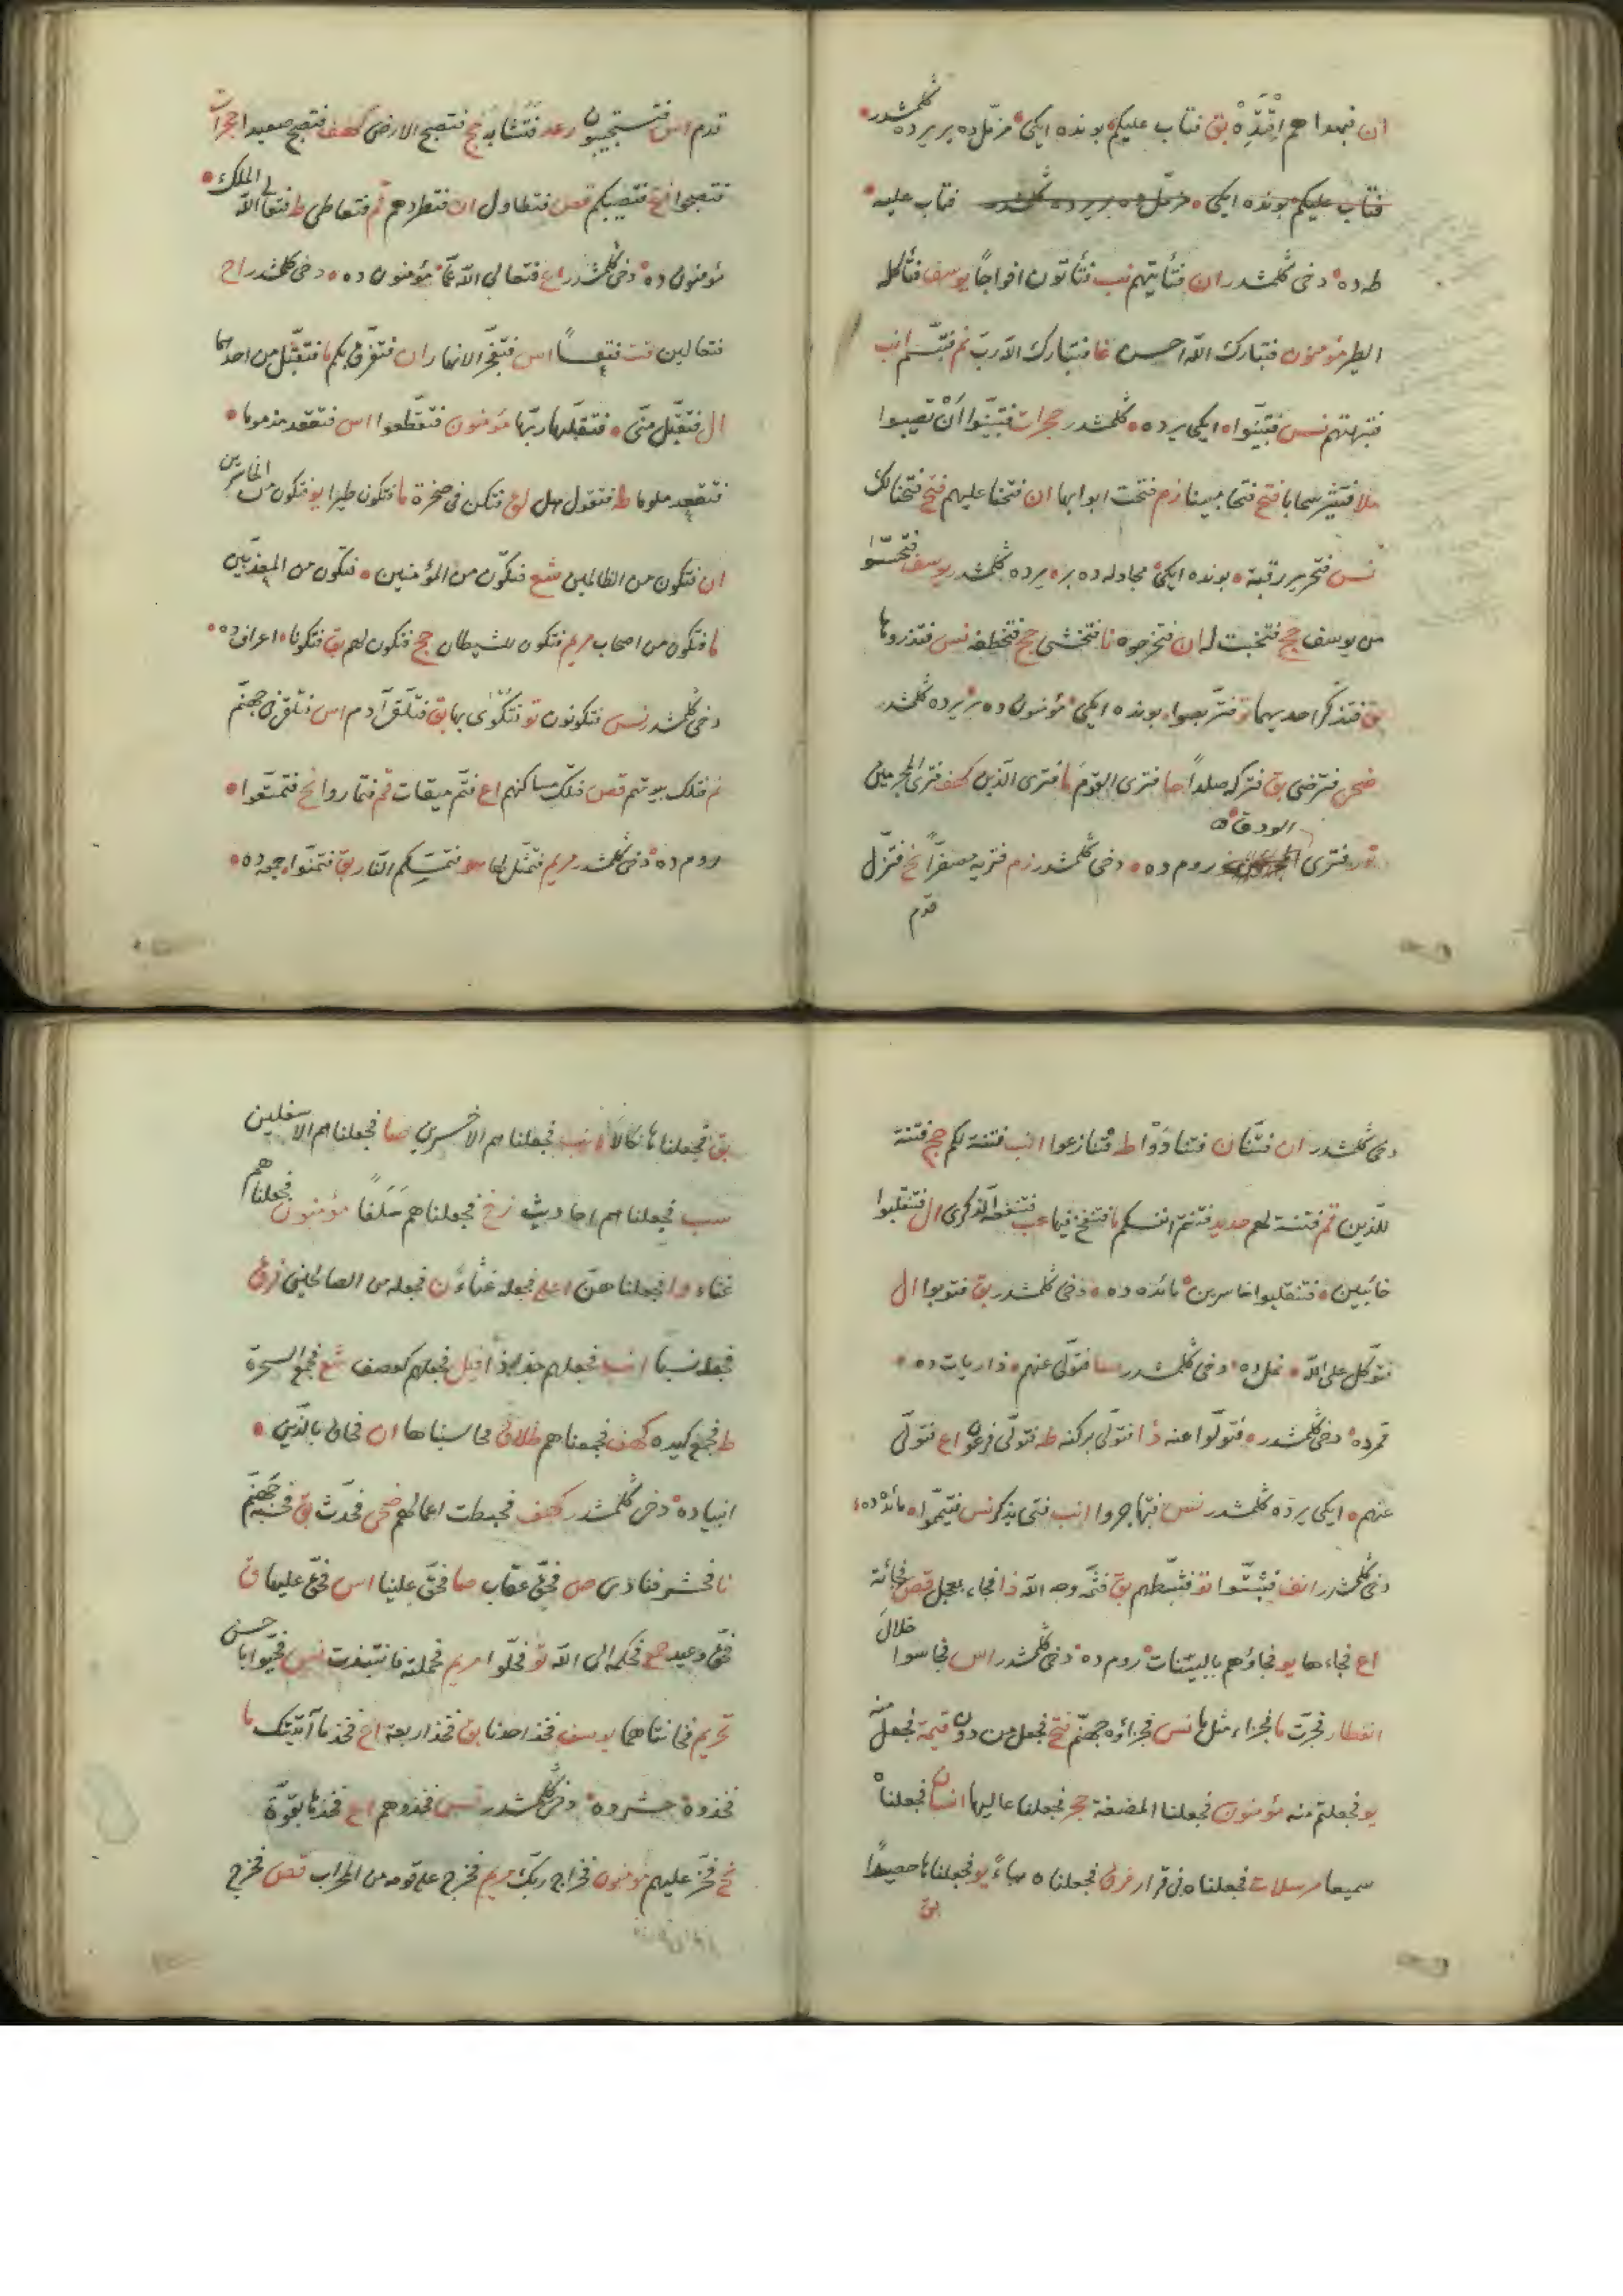 ان فبهداهم اقتده بق فتاب عليكم بونده ايكى مزمل ده بر يرده گلمشدر
فتاب عليكم بونده ايكى مزمل ده بر يرده گلمشدر فتاب عليه
طه ده دخى گلمشدر ان فتأتيهم نب فتأتون افواجاً يوسف فتأكل
الطير مؤمنون فتبارك الله احسن غا فتبارك الله رب نم فتبسم انب
فتبهتهم نس فتبينوا ايكى يرده گلمشدر حجرات فتبينوا أن تصيبوا
ملا فتثير سحابا فتح فتحا مبينا زم فتحت ابوابها ان فتحنا عليهم فتح فتحنا لك
نس فتحرير رقبة بونده ايكى مجادله ده بر يرده گلمشدر يوسف فتحسسوا
من يوسف حج فتخبت له ان فتخرجوه نا فتخشى حج فتخطفه نس فتذروها
بق فتذكر احديهما تو فتربصوا بونده ايكى مؤمنون ده بر يرده گلمشدر
ضحى فترضى بق فتركه صلداً ما فترى القوم ما فترى الذين كهف فترى المجرمين
نور فترى الودق روم ده دخى گلمشدر زم فتريه مصفراً نح فتزل
قدم
قدم اس فتستجيبون رعد فتشابه حج فتصبح الارض كهف فتصبح صعيدا حجرات
فتصبحوا فتح فتصيبكم قصص فتطاول ان فتطردهم قم فتعاطى ط فتعالى الله الملك
مؤمنون ده دخى گلمشدر اع فتعالى الله عما مؤمنون ده دخى گلمشدر اح
فتعالين قت فتعساً اس فتفجر الانهار ان فتفرق بكم ما فتقبل من احدهما
ال فتقبل منى فتقبلها ربها مؤمنون فتقطعوا اس فتقعد مذموما
فتقعد ملوما ط فتقول هل لق فتكن فى صخرة ما فتكون طيرا يو فتكون من الخاسرين
ان فتكون من الظالمين شع فتكون من المؤمنين فتكون من المعذبين
ما فتكون من اصحاب مريم فتكون للشيطان حج فتكون لهم بق فتكونا اعراف ده
دخى گلمشدر نس فتكونون تو فتكوى بها بق فتلقى آدم اس فتلقى فى جهنم
نم فتلك بيوتهم قصص فتلك مساكنهم اع فتم ميقات قم فتماروا نح فتمتعوا
روم ده دخى گلمشدر مريم فتمثل لها هو فتمسكم النار بق فتمنوا جمعه ده
دخى گلمشدر ان فتنا قت فتنادوا ط فتنازعوا انب فتنة لكم حج فتنة
للذين قم فتنة لهم حديد فتنتم انفسكم ما فتنفخ فيها عب فتنفعه الذكرى ال فتنقلبوا
خائبين فتنقلبوا خاسرين مائده ده دخى گلمشدر بق فتوبوا ال
فتوكل على الله نمل ده دخى گلمشدر صا فتولى عنهم ذاريات ده
قمر ده دخى گلمشدر فتولوا عنه ذا فتولى بركنه طه فتولى فرعون اع فتولى
عنهم ايكى يرده گلمشدر نس فتهاجروا انب فتى يذكر نس فتيمموا مائده ده
دخى گلمشدر انف فثبتوا تو فثبطهم بق فثم وجه الله ذا فجاء بعجل قص فجاءته
اع فجاءها يو فجاؤهم بالبينات روم ده دخى گلمشدر اس فجاسوا خلال
انفطار فجرت ما فجزاء مثل ما نس فجزاؤه جهنم فتح فجعل من دون قيمة فجعل منه
يو فجعلتم منه مؤمنون فجعلنا المضغة حجر فجعلنا عاليها انسان فجعلناه
سميعا مرسلات فجعلناه فى قرار فرق فجعلناه هباءً يو فجعلناها حصيداً
بق
بق فجعلناها نكالاً انب فجعلناهم الاخسرين صا فجعلناهم الاسفلين
سب فجعلناهم احاديث زخ فجعلناهم سلفاً مؤمنون فجعلناهم
غثاء وا فجعلناهن اعلى فجعله غثاءً ن فجعله من الصالحين فرق
فجعله نسباً انب فجعلهم جذاذاً فيل فجعلهم كعصف شع فجمع السحرة
ط فجمع كيده كهف فجمعناهم طلاق فحاسبناها ان فحاق بالذين
انبياده دخى گلمشدر كهف فحبطت اعمالهم ضحى فحدث بق فحسبه جهنم
نا فحشر فنادى ص فحق عقاب صا فحق علينا اس فحق عليها ق
فحق وعيد فحكمه الى الله تو فخلوا مريم فحملته فانتبذت نس فحيوا باحسن
تحريم فخانتاهما يوسف فخذ احدنا بق فخذ اربعة اع فخذ ما آتيتك ما
فخذوه حشر ده دخى گلمشدر نس فخذوهم اع فخذها بقوة
نح فخر عليهم مؤمنون فخراج ربك مريم فخرج على قومه من المحراب قص فخرج